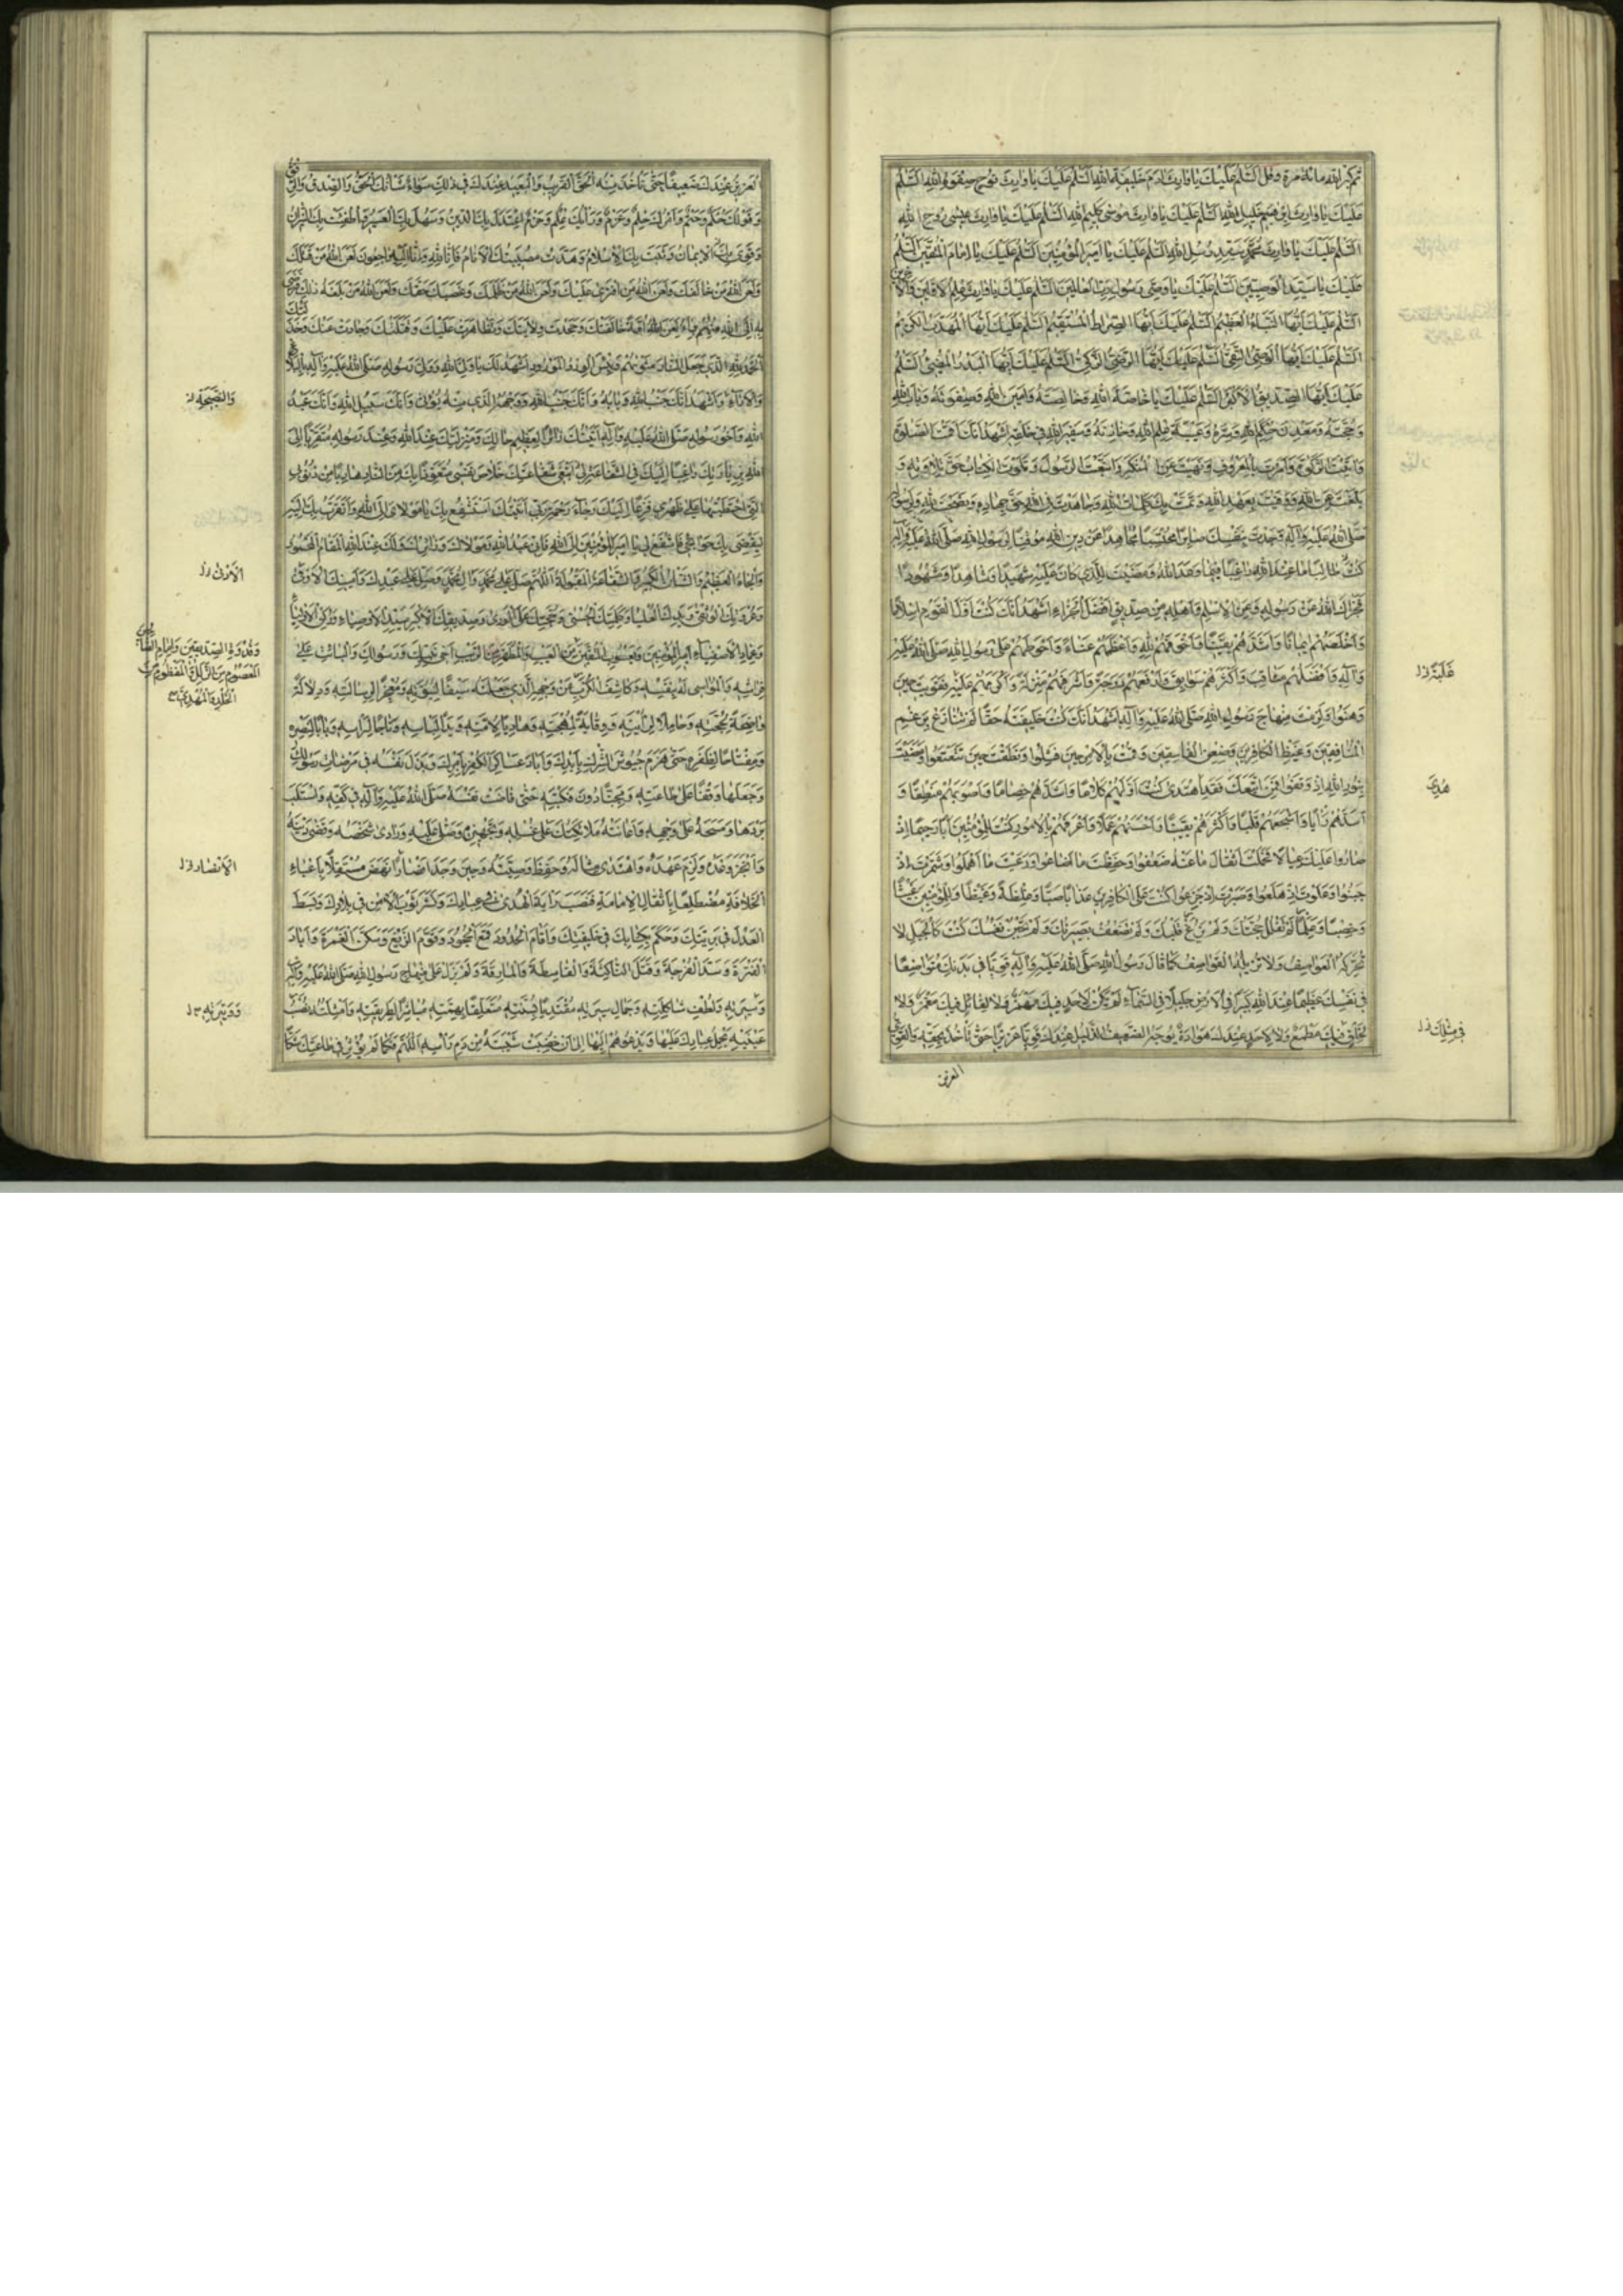 ثم كبر الله مائة مرة وقل السلم عليك يا وارث ادم خليفة الله السلم عليك يا وارث نوح صفوة الله السلم
عليك يا وارث ابرهيم خليل الله السلم عليك يا وارث موسى كليم الله السلم عليك يا وارث عيسى روح الله
السلم عليك يا وارث محمد سيد رسل الله السلم عليك يا امير المؤمنين السلم عليك يا امام المتقين السلم
عليك يا سيد الوصيين السلم عليك يا وصى رسول رب العالمين السلم عليك يا وارث علم الاولين والا
خرين
السلم عليك ايها النباء العظيم السلم عليك ايها الصراط المستقيم السلم عليك ايها المهذب الكريم
السلم عليك ايها الوصى التقى السلم عليك ايها الرضى الزكى السلم عليك ايها البدر المضئ السلم
عليك ايها الصديق الاكبر السلم عليك يا خاصة الله وخالصته وامين الله وصفوته وباب الله
وحجته ومعدن حكم الله وسره وعيبة علم الله وخازنه وسفير الله فى خلقه اشهد انك اقمت الصلوة
واتيت الزكوة وامرت بالمعروف ونهيت عن المنكر واتبعت الرسول وتلوت الكتاب حق تلاوته و
بلغت عن الله ووفيت بعهد الله وتمت بك كلمات الله وجاهدت فى الله حق جهاده ونصحت لله ولرسوله
صلى الله عليه وآله وجدت بنفسك صابرا محتسبا مجاهدا عن دين الله موقيا لرسول الله صلى الله عليه وآله
طالبا ما عند الله راغبا فيما وعد الله ومضيت للذى كنت عليه شهيدا وشاهدا ومشهودا
فجزاك الله عن رسوله وعن الاسلم واهله من صديق افضل الجزاء اشهد انك كنت اول القوم اسلاما
واخلصهم ايمانا واشدهم يقينا واخوفهم لله واعظمهم عناء واحوطهم على رسول الله صلى الله عليه
وآله وافضلهم مناقب واكثرهم سوابق وارفعهم درجة واشرفهم منزلة واكرمهم عليه فقويت حين
وهنوا ولزمت منهاج رسول الله صلى الله عليه وآله اشهد انك كنت خليفته حقا لم تنازع برغم
المنافقين وغيظ الكافرين وضغن الفاسقين وقمت بالامر حين فشلوا ونطقت حين تتعتعوا ومضيت
بنور الله اذ وقفوا فمن اتبعك فقد اهتدى كنت اولهم كلاما واشدهم خصاما واصوبهم منطقا و
اسدهم رأيا واشجعهم قلبا واكثرهم يقينا واحسنهم عملا واعرفهم بالامور كنت للمؤمنين ابا رحيما اذ
صاروا عليك عيالا فحملت اثقال ما عنه ضعفوا وحفظت ما اضاعوا ورعيت ما اهملوا وشمرت اذ
جبنوا وعلوت اذ هلعوا وصبرت اذ جزعوا كنت على الكافرين عذابا صبا وغلظة وغيظا وللمؤمنين غيثا
وخصبا وعلما لم تفلل حجتك ولم يزغ قلبك ولم تضعف بصيرتك ولم تجبن نفسك كنت كالجبل لا
تحركه العواصف ولا تزيله القواصف كنت كما قال رسول الله صلى الله عليه وآله قويا فى بدنك متواضعا
فى نفسك عظيما عند الله كبيرا فى الارض جليلا فى السماء لم يكن لاحد فيك مهمز ولا لقائل فيك مغمز ولا
لخلق فيك مطمع ولا لاحد عندك هوادة يوجد الضعيف الذليل عندك قويا عزيزا حتى تأخذ بحقه والقوى
غلبة ل
هدى
فى مثلك ل
العزيز
العزيز عندك ضعيفا حتى تأخذ منه الحق القريب والبعيد عندك فى ذلك سواء شأنك الحق والصدق والرفق
وقولك حكم وحتم وامرك حلم وعزم ورأيك علم وحزم اعتدل بك الدين وسهل بك العسير واطفئت بك النيران
وقوى بك الايمان وثبت بك الاسلام وهدت مصيبتك الانام فانا لله وانا اليه راجعون لعن الله من قتلك
ولعن الله من خالفك ولعن الله من افترى عليك ولعن الله من ظلمك وغصبك حقك ولعن الله من بلغه ذلك فرضى
به انا الى الله منهم براء لعن الله امة خالفتك وجحدت ولايتك وتظاهرت عليك وقتلتك وحادت عنك وخذلتك
الحمد لله الذى جعل النار مثويهم وبئس الورد المورود اشهد لك يا ولى الله وولى رسوله صلى الله عليه وآله بالبلاغ
والاداء واشهد انك جنب الله وبابه وانك حبيب الله ووجهه الذى منه يؤتى وانك سبيل الله وانك عبد
الله واخو رسوله صلى الله عليه وآله اتيتك زائرا لعظيم حالك ومنزلتك عند الله وعند رسوله متقربا الى
الله بزيارتك راغبا اليك فى الشفاعة ابتغى بشفاعتك خلاص نفسى متعوذا بك من النار هاربا من ذنوبى
التى احتطبتها على ظهرى فزعا اليك رجاء رحمة ربى اتيتك استشفع بك يا مولاى الى الله واتقرب بك اليه
ليقضى بك حوائجى فاشفع لى يا امير المؤمنين الى الله فانى عبد الله ومولاك وزائرك ولك عند الله المقام المحمود
والجاه العظيم والشأن الكبير والشفاعة المقبولة اللهم صل على محمد وآل محمد وصل على عبدك وامينك الاوفى
وعروتك الوثقى ويدك العليا وكلمتك الحسنى وحجتك على الورى وصديقك الاكبر سيد الاوصياء وركن الاولياء
وعماد الاصفياء امير المؤمنين ويعسوب المتقين
فراشه والمواسى له بنفسه وكاشف الكرب عن وجهه الذى جعلته سيفا لنبوته ومعجزا لرسالته ودلالة
واضحة لحجته وحاملا لرايته ووقاية لمهجته وهاديا لامته ويدا لبأسه وتاجا لرأسه وبابا لنصره
ومفتاحا لظفره حتى هزم جنود الشرك بايدك واباد عساكر الكفر بامرك وبذل نفسه فى مرضات رسولك
وجعلها وقفا على طاعته ومجنا دون نكبته حتى فاضت نفسه صلى الله عليه وآله فى كفه واستلب
بردها ومسحه على وجهه واعانته ملائكتك على غسله وتجهيزه وصلى عليه ووارى شخصه وقضى دينه
وانجز وعده ولزم عهده واهتدى مثاله وحفظ وصيته وحين وجد انصارا نهض مستقلا باعباء
الخلافة مضطلعا باثقال الامامة فنصب راية الهدى فى عبادك ونشر ثوب الامن فى بلادك وبسط
العدل فى بريتك وحكم بكتابك فى خليقتك واقام الحدود وقمع الجحود وقوم الزيغ وسكن الغمرة واباد
الفترة وسد الفرجة وقتل الناكثة والقاسطة والمارقة ولم يزل على منهاج رسول الله صلى الله عليه وآله
وسيرته ولطف شاكلته وجمال سيرته مقتديا بسنته متعلقا بهمته مباشرا لطريقته وامثلته نصب
عينيه يحمل عبادك عليها ويدعوهم اليها الى ان خضبت شيبته من دم رأسه اللهم فكما لم يؤثر فى طاعتك شكا
والنصيحة ل
الاوفى ل
وقدوة الصديقين وامام الصالحين
المعصوم من الزلل المفطوم من
الخلل المهذب
الانصار ل
ووتيرته ل